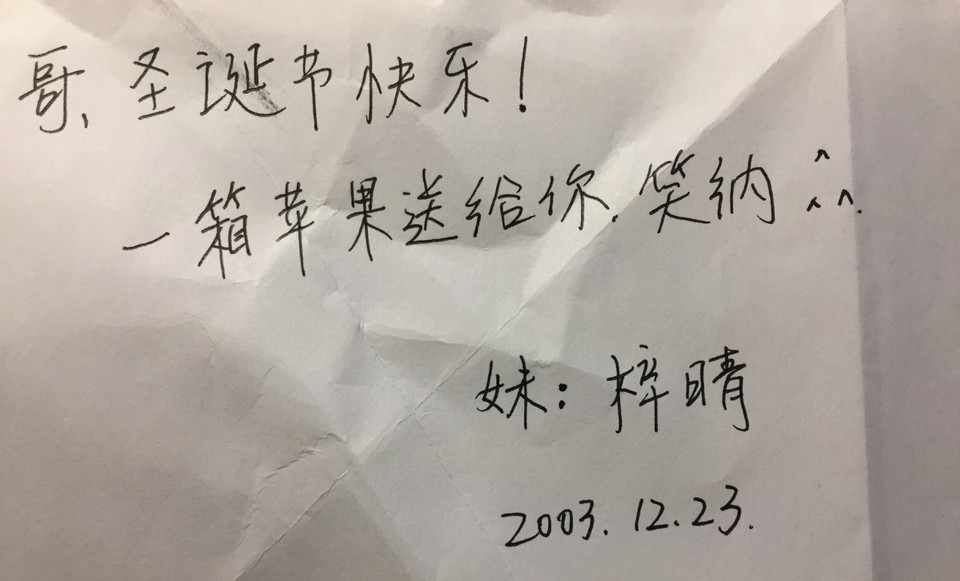 哥、圣诞节快乐!
一箱苹果送给你,笑纳 ^^^.
妹:梓晴
2003.12.23.